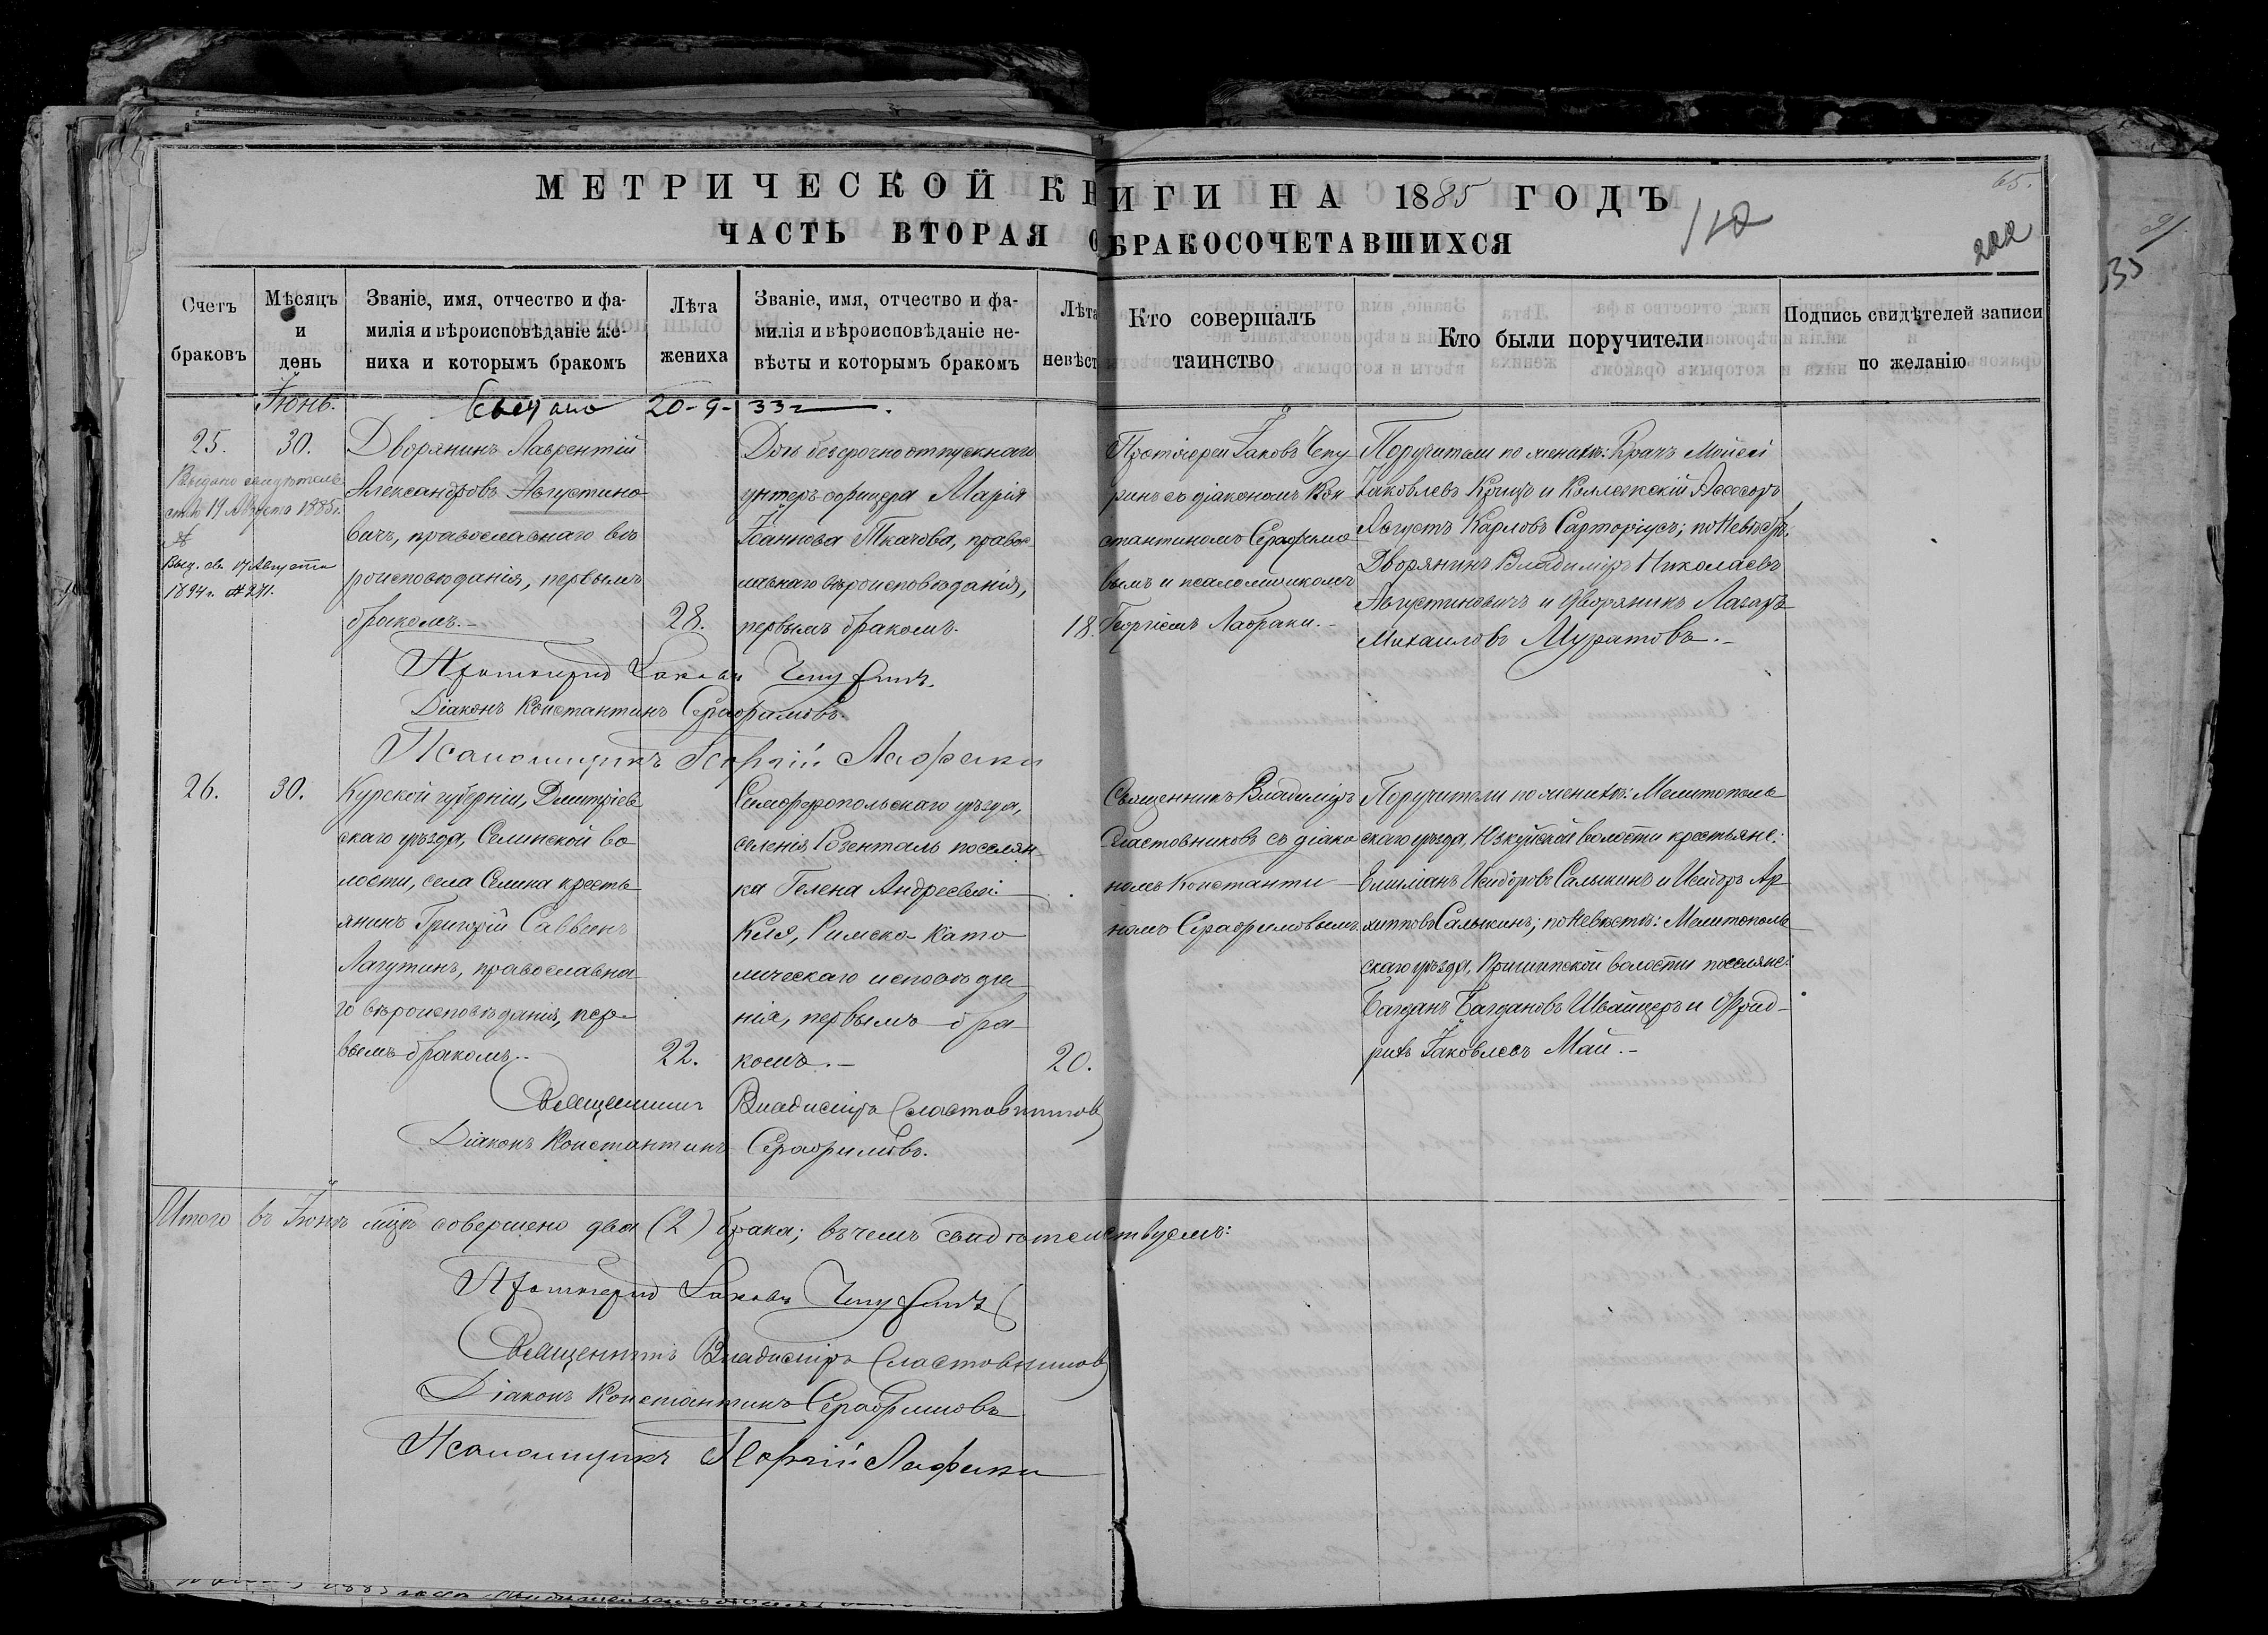 МЕТРИЧЕСКОЙ КНИГИ НА 1885 ГОДЪ
65.
ЧАСТЬ ВТОРАЯ О БРАКОСОЧЕТАВШИХСЯ
202
35
Счетъ браковъ
Мѣсяцъ и день
Званіе, имя, отчество и фа-
милія и вѣроисповѣданіе же-
ниха и которымъ бракомъ
Лѣта
жениха
Званіе, имя, отчество и фа-
милія и вѣроисповѣданіе не-
вѣсты и которымъ бракомъ
Лѣта
невѣст
Кто совершалъ
таинство
Кто были поручители
Подпись свидѣтелей записи
по желанію
Іюнь.
20-9-33г
25.
30.
Выдано свидѣтель
ство 19 Августа 1885г.
Выд. св. 17 Августа
1894г. № 271.
Дворянинъ Лаврентій
Александровъ Августино
вичъ, православнаго вѣ
роисповѣданія, первымъ
бракомъ.-
28.
Дочь безсрочноотпускнаго
унтеръ-офицера Марія
Іоаннова Ткачова, право-
славнаго вѣроисповѣданія,
первымъ бракомъ.
18.
Протоіерей Іаковъ Чепу
ринъ съ діакономъ Кон
стантиномъ Серафимо
вымъ и псаломщикомъ
Георгіемъ Лафаки.-
Поручители по женихѣ: Врачъ Мойсей
Іаковлевъ Кричъ и Коллежскій Ассесоръ
Августъ Карловъ Сарторіусъ; по Невѣстѣ:
Дворянинъ Владиміръ Николаевъ
Августиновичъ и дворянинъ Лазарь
Михаиловъ Муратовъ.-
Протоіерей Іаковъ Чепуринъ.
Діаконъ Константинъ Серафимовъ.
Псаломщикъ Георгій Лафаки
26.
30.
Курской губерніи, Дмитріев
скаго уѣзда, Селинской во
лости, села Селина кресть
янинъ Григорій Саввинъ
Лагутинъ, православна
го вѣроисповѣданія, пер-
вымъ бракомъ.-
22.
Симферопольскаго уѣзда,
селенія Розенталь поселян-
ка Гелена Андреева
Келя, Римско-Като
лическаго исповѣда
нія, первымъ бра
комъ.-
20.
Священникъ Владиміръ
Сластовниковъ съ діако
номъ Константи
номъ Серафимовымъ.
Поручители по женихѣ: Мелитополь
скаго уѣзда, Юзкуйской волости крестьяне:
Емиліанъ Исидоровъ Салыкинъ и Исидоръ Ар
хипповъ Салыкинъ; по Невѣстѣ: Мелитополь
скаго уѣзда, Пришибской волости поселяне:
Багданъ Багдановъ Швайцеръ и Фрид-
рихъ Іаковлевъ Май.-
Священникъ Владиміръ Сластовниковъ
Діаконъ Константинъ Серафимовъ.
Итого въ Іюнѣ мцѣ совершено два (2) брака; въ чемъ свидѣтельствуемъ:
Протоіерей Іаковъ Чепуринъ
Священникъ Владиміръ Сластовниковъ
Діаконъ Константинъ Серафимовъ
Псаломщикъ Георгій Лафаки